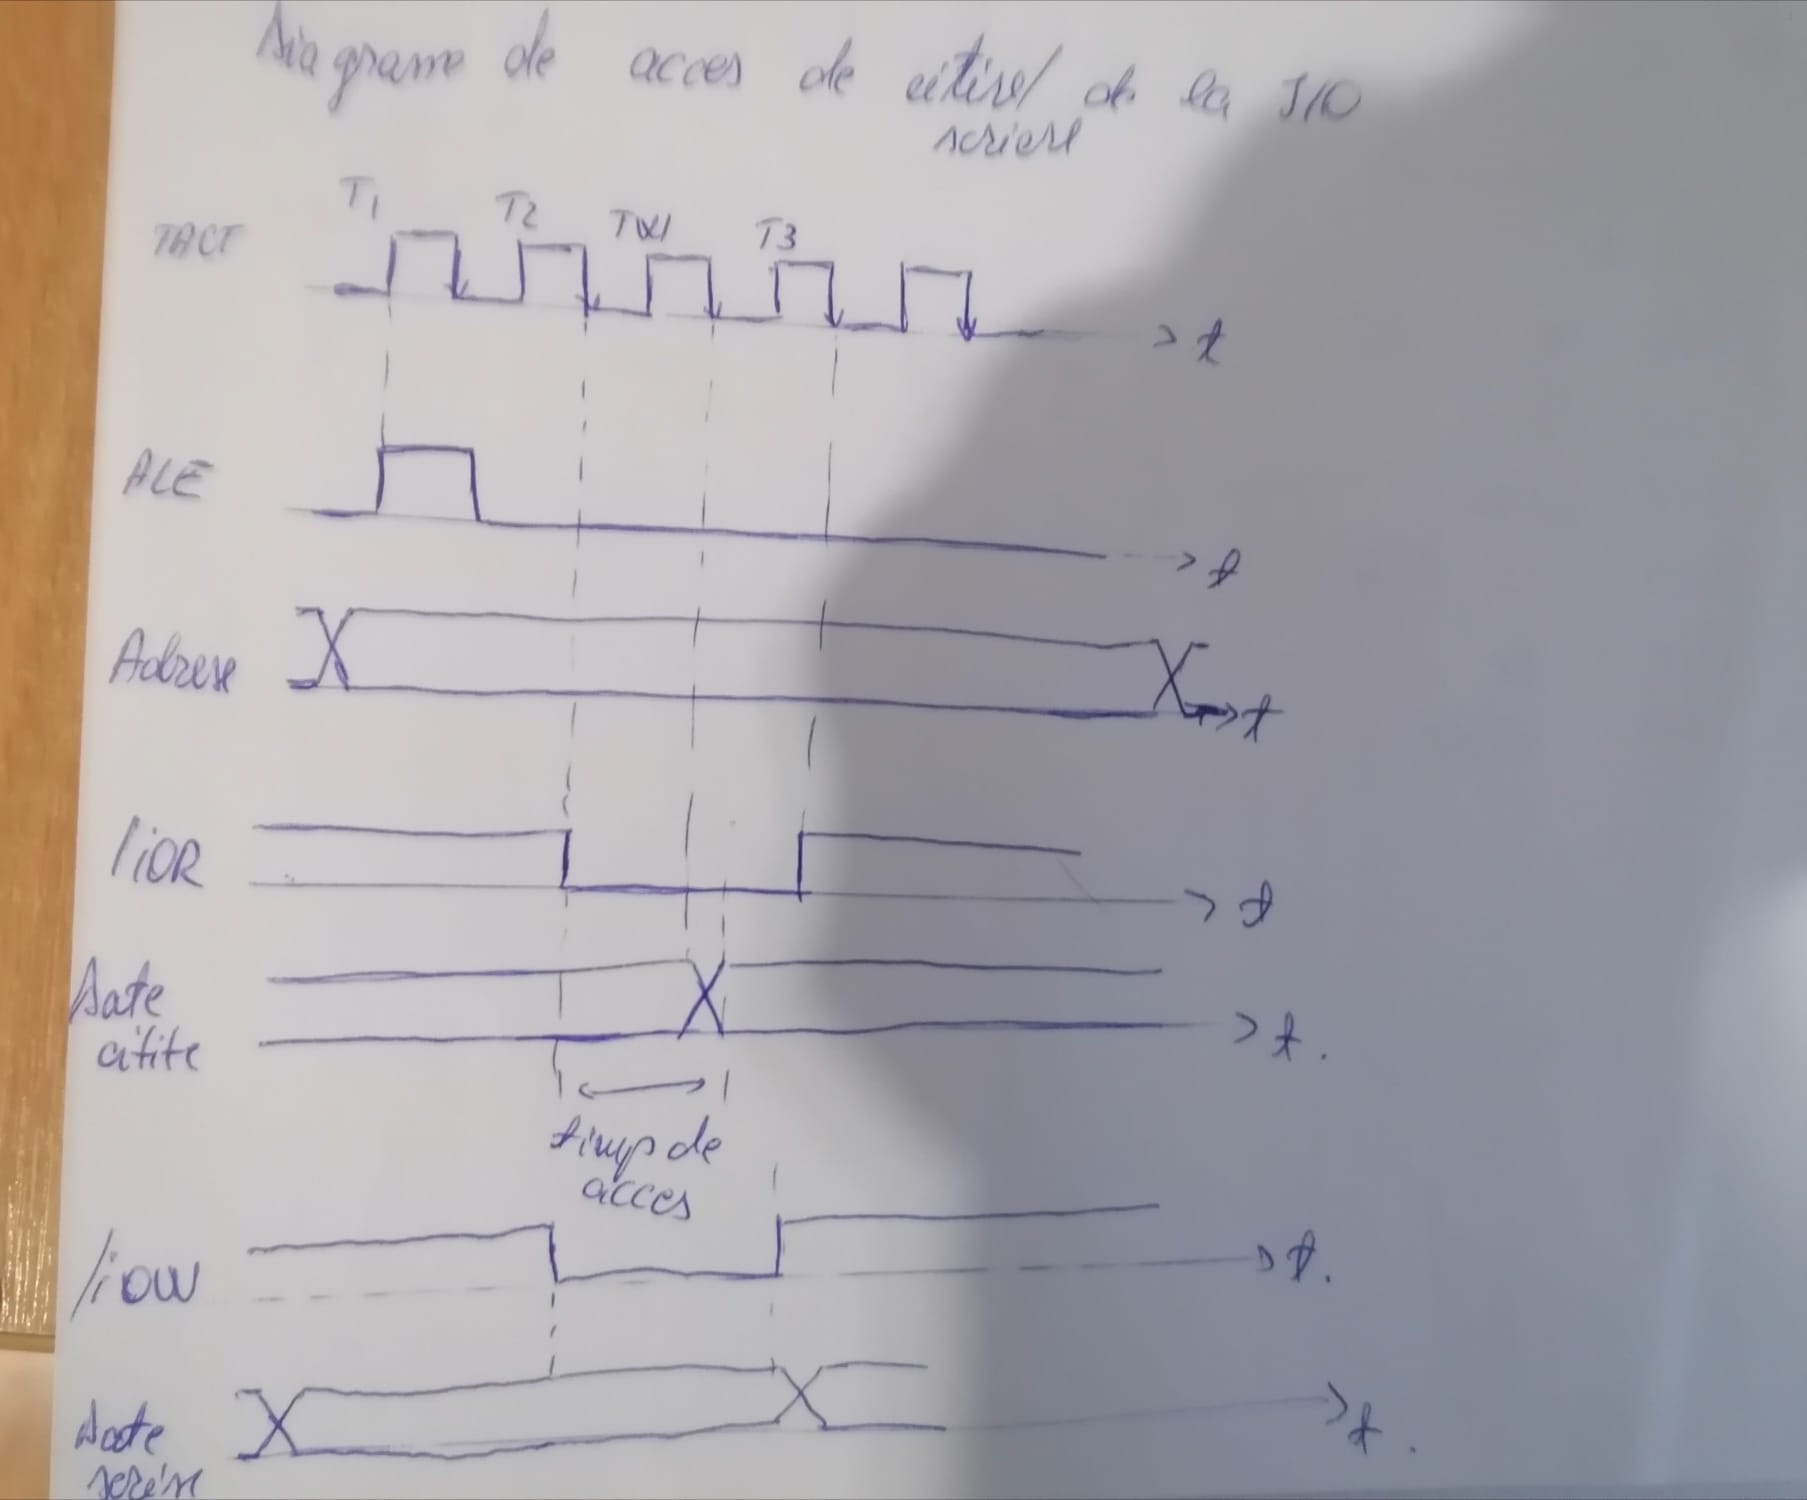 Diagrame de acces de citire/ de la I/O
scriere
T1 T2 TW1 T3
TACT
t
ALE
t
Adrese
t
/iOR
t
Date
citite
t.
timp de
acces
/iOW
t.
Date
scrise
t.